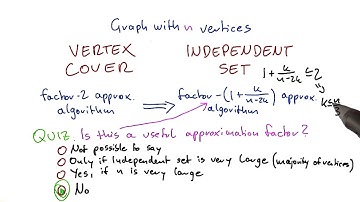 Graph with n vertices
VERTEX COVER
INDEPENDENT SET
1 + k/(n-2k) ≤ 2
factor-2 approx. algorithm
⇒
factor-(1 + k/(n-2k)) approx. algorithm
k ≤ n/3
QUIZ. Is this a useful approximation factor?
Not possible to say
Only if Independent set is very large (majority of vertices)
Yes, if n is very large
No